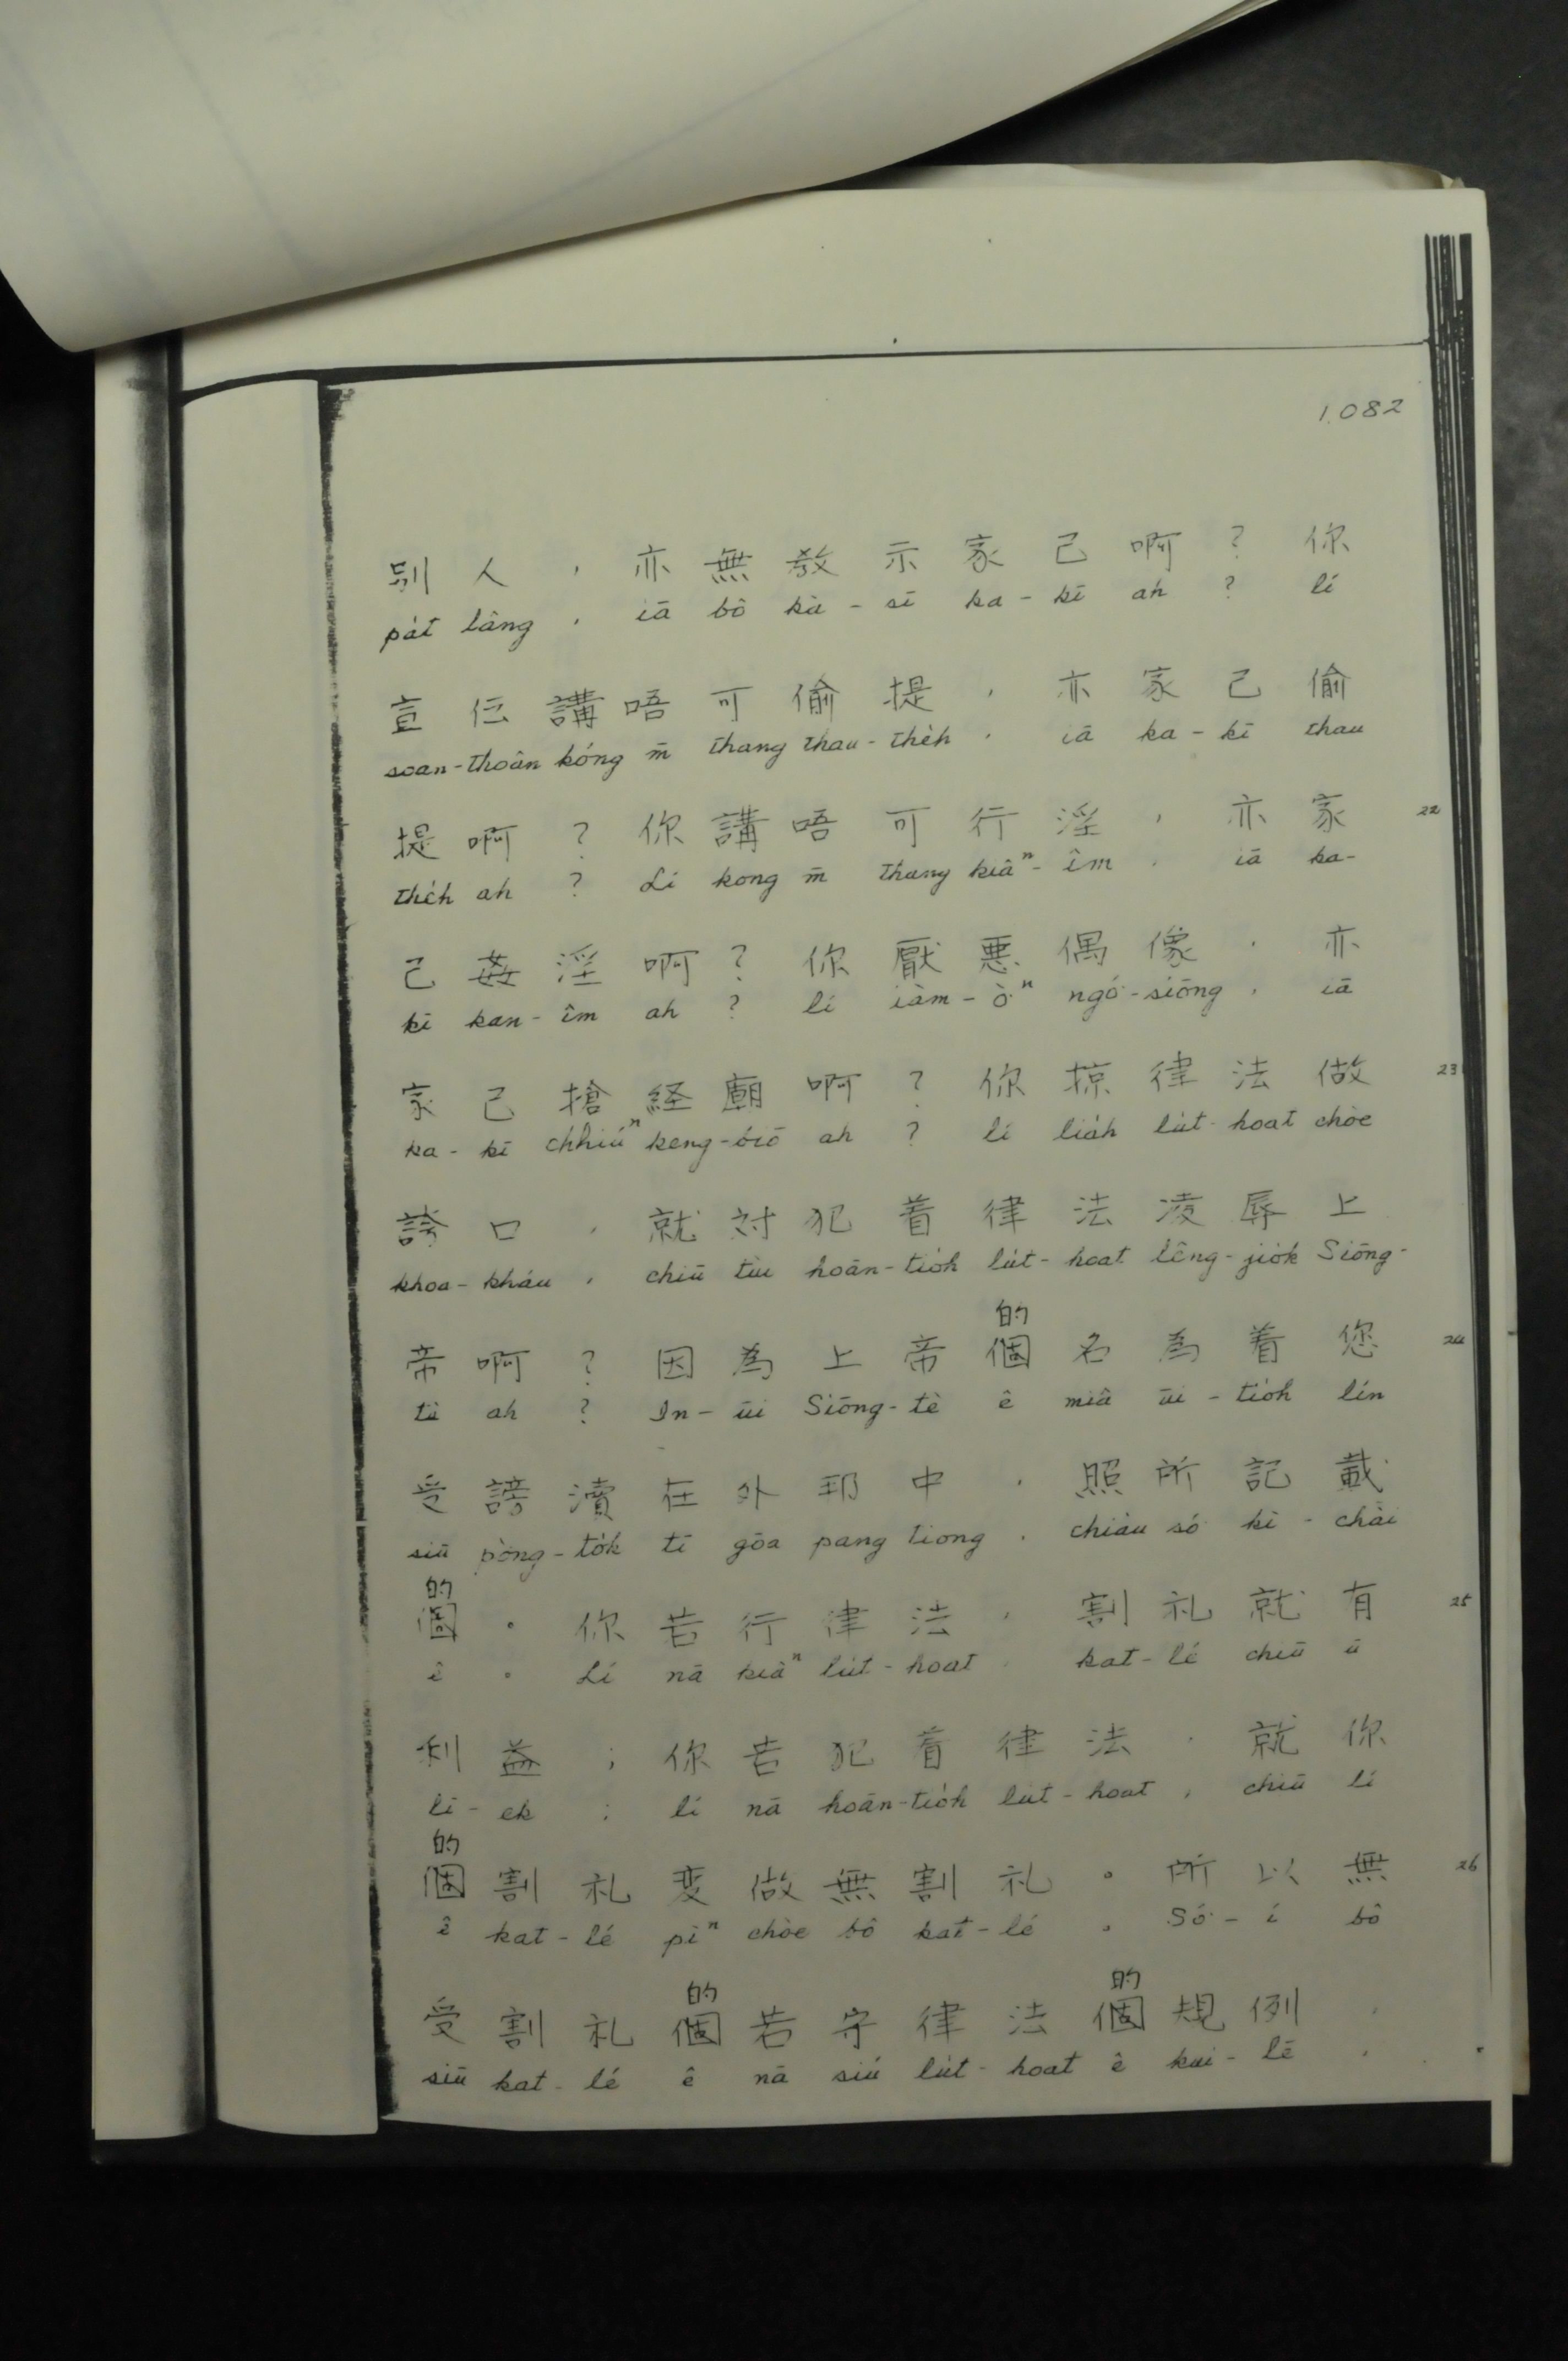 1.082
別人，亦無教示家己啊？你
pa̍t lâng , iā bô kà-sī ka-kī ah ? lí
宣伝講唔可偷提，亦家己偷
soan-thoân kóng m̄ thang thau-the̍h , iā ka-kī thau
提啊？你講唔可行淫，亦家 22
the̍h ah ? Lí kong m̄ thang kiâⁿ-îm , iā ka-
己姦淫啊？你厭悪偶像，亦
kī kan-îm ah ? lí iàm-ò͘ⁿ ngó͘-siōng , iā
家己搶経廟啊？你掠律法做 23
ka-kī chhiúⁿ keng-biō ah ? lí lia̍h lu̍t-hoat chòe
誇口，就対犯着律法凌辱上
khoa-kháu , chiū tùi hoān-tio̍h lu̍t-hoat lêng-jio̍k Siōng-
的
帝啊？因為上帝個名為着您 24
tè ah ? In-ūi Siōng-tè ê miâ ūi-tio̍h lín
受謗瀆在外邦中，照所記載
siū pòng-to̍k tī gōa pang tiong , chiàu só͘ kì-chài
的
個。你若行律法，割礼就有 25
ê 。 Lí nā kiâⁿ lu̍t-hoat , kat-lé chiū ū
利益；你若犯着律法，就你
lī-ek ; lí nā hoān-tio̍h lu̍t-hoat , chiū lí
的
個割礼変做無割礼。所以無 26
ê kat-lé pìⁿ chòe bô kat-lé 。 Só͘-í bô
的 的
受割礼個若守律法個規例，
siū kat-lé ê nā siú lu̍t-hoat ê kui-lē ,